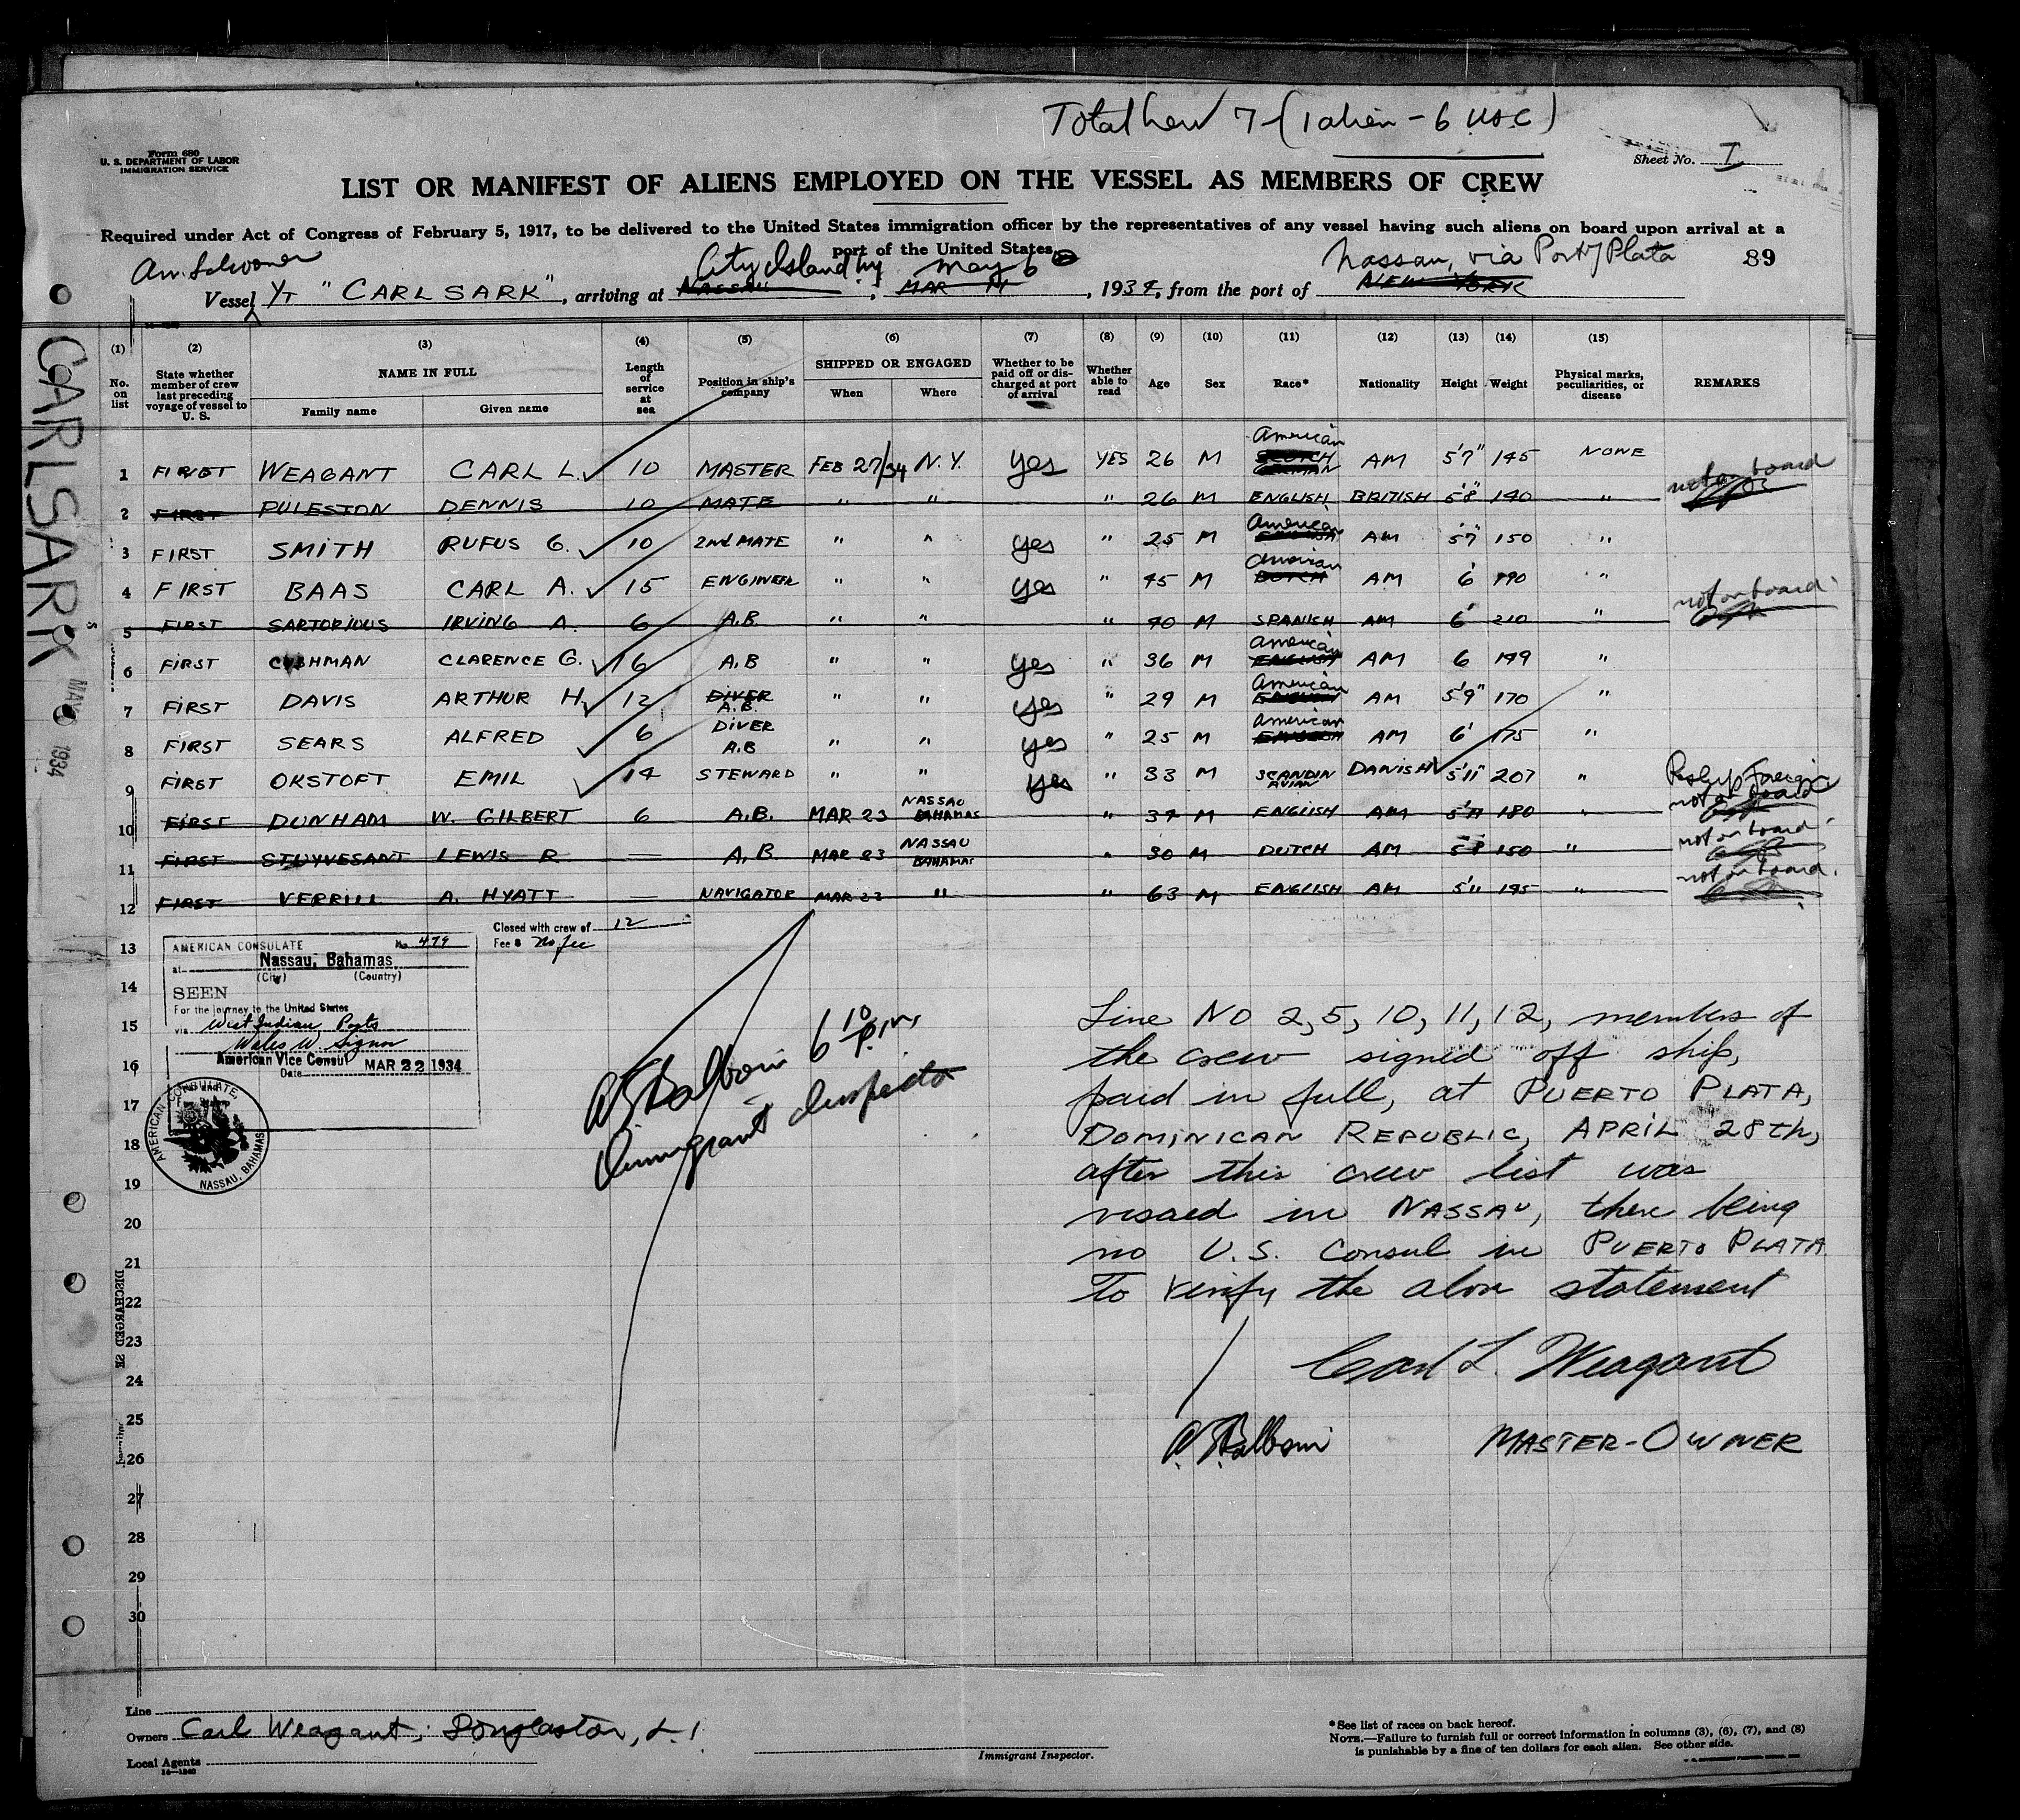 Total Crew 7 (1 alien - 6 USC)
Form 680
U. S. DEPARTMENT OF LABOR
IMMIGRATION SERVICE
Sheet No. I
LIST OR MANIFEST OF ALIENS EMPLOYED ON THE VESSEL AS MEMBERS OF CREW
Required under Act of Congress of February 5, 1917, to be delivered to the United States immigration officer by the representatives of any vessel having such aliens on board upon arrival at a
port of the United States
Am. Schooner City Island NY May 6 Nassau, via Porty Plata 89
Vessel Yt "CARLSARK", arriving at NASSAU, MAR, 1934, from the port of NEW YORK
CARLSARK
MAY 1934
(1) (2) (3) (4) (5) (6) (7) (8) (9) (10) (11) (12) (13) (14) (15)
No. on list
State whether member of crew last preceding voyage of vessel to U. S.
NAME IN FULL
Family name Given name
Length of service at sea
Position in ship's company
SHIPPED OR ENGAGED
When Where
Whether to be paid off or discharged at port of arrival
Whether able to read
Age Sex Race* Nationality Height Weight
Physical marks, peculiarities, or disease
REMARKS
1 FIRST WEAGANT CARL L. 10 MASTER FEB 27/34 N.Y. Yes YES 26 M American SCOTCH GERMAN AM 5'7" 145 NONE
2 FIRST PULESTON DENNIS 10 MATE " " " 26 M ENGLISH BRITISH 5'8" 140 " not on board
3 FIRST SMITH RUFUS G. 10 2nd MATE " " yes " 25 M American ENGLISH AM 5'7" 150 "
4 FIRST BAAS CARL A. 15 ENGINEER " " yes " 45 M American DUTCH AM 6' 190 "
5 FIRST SARTORIOUS IRVING A. 6 A.B. " " " 40 M SPANISH AM 6' 210 " not on board
6 FIRST CUSHMAN CLARENCE G. 6 A.B " " yes " 36 M American ENGLISH AM 6 149 "
7 FIRST DAVIS ARTHUR H. 12 DIVER A.B. " " yes " 29 M American ENGLISH AM 5'9" 170 "
8 FIRST SEARS ALFRED 6 DIVER A.B " " yes " 25 M American ENGLISH AM 6' 175 "
9 FIRST OKSTOFT EMIL 14 STEWARD " " yes " 33 M SCANDINAVIAN DANISH 5'11" 207 " Reship Foreign
10 FIRST DUNHAM W. GILBERT 6 A.B. MAR 23 NASSAU BAHAMAS " 37 M ENGLISH AM 5'11 180 " not on board
11 FIRST STUYVESANT LEWIS R — A.B MAR 23 NASSAU BAHAMAS " 30 M DUTCH AM 5'8 150 " not on board
12 FIRST VERRILL A. HYATT — NAVIGATOR MAR 22 " " 63 M ENGLISH AM 5'11 195 " not on board.
Closed with crew of 12
Fee $ No fee
13
14
15
16
17
18
19
20
21
22
23
24
25
26
27
28
29
30
AMERICAN CONSULATE No. 479
at Nassau, Bahamas
(City) (Country)
SEEN
For the journey to the United States
via West Indian Ports
Wales W. Signor
American Vice Consul
Date MAR 22 1934
AMERICAN CONSULATE, NASSAU, BAHAMAS
6 10 P.M.
Immigrant Inspector
Line No 2, 5, 10, 11, 12, members of
the crew signed off ship,
paid in full, at PUERTO PLATA,
DOMINICAN REPUBLIC, APRIL 28th,
after this crew list was
visaed in NASSAU, there being
no U.S. Consul in PUERTO PLATA
To verify the above statement
Carl L. Weagant
MASTER-OWNER
DISCHARGED SE
Line
Owners Carl Weagant; Douglaston, L.I.
Local Agents
16—1240
Immigrant Inspector.
*See list of races on back hereof.
NOTE.—Failure to furnish full or correct information in columns (3), (6), (7), and (8)
is punishable by a fine of ten dollars for each alien. See other side.